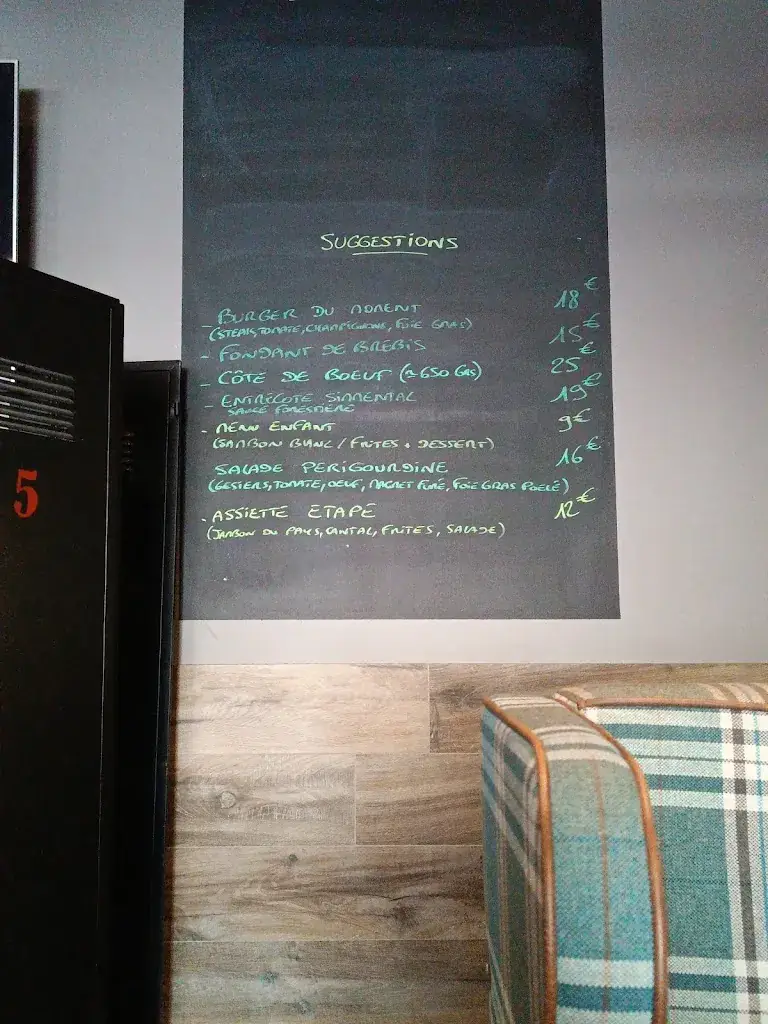 SUGGESTIONS
- BURGER DU MOMENT 18€
(STEAK, TOMATE, CHAMPIGNONS, FOIE GRAS)
- FONDANT DE BREBIS 15€
- CÔTE DE BOEUF (≈ 650 GRS) 25€
- ENTRECOTE SIMMENTAL 19€
SAUCE FORESTIÈRE
- MENU ENFANT 9€
(JAMBON BLANC / FRITES + DESSERT)
SALADE PERIGOURDINE 16€
(GESIERS, TOMATE, OEUF, MAGRET FUMÉ, FOIE GRAS POELÉ)
- ASSIETTE ETAPE 12€
(JAMBON DU PAYS, CANTAL, FRITES, SALADE)
5